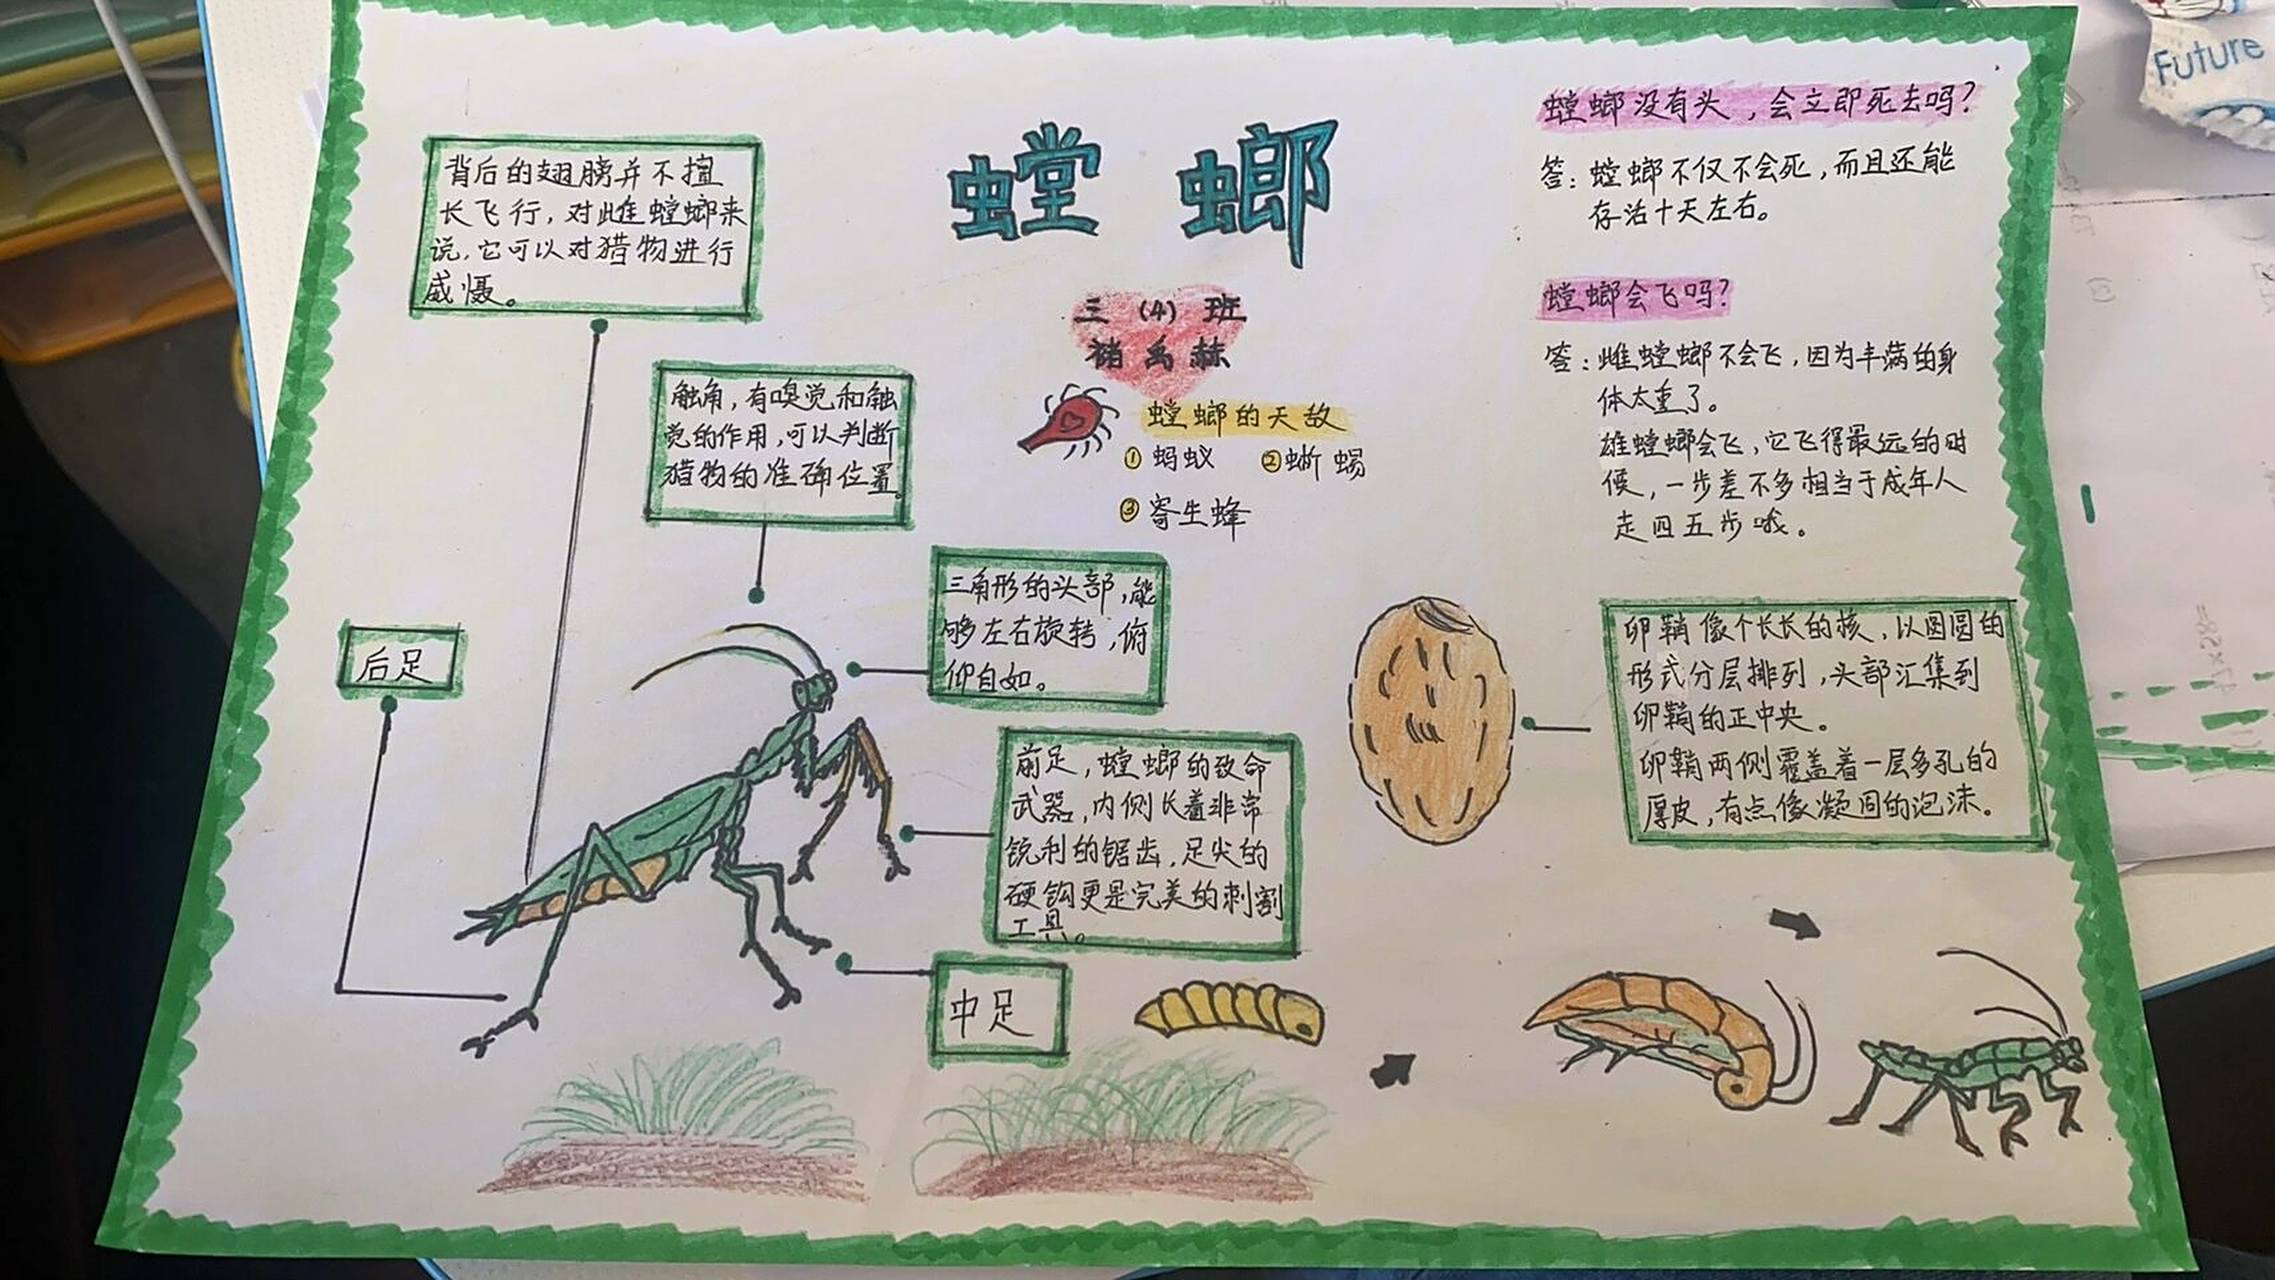 螳螂
三（4）班
褚禹赫
背后的翅膀并不擅
长飞行，对雌螳螂来
说，它可以对猎物进行
威慑。
触角，有嗅觉和触
觉的作用，可以判断
猎物的准确位置
三角形的头部，能
够左右旋转，俯
仰自如。
后足
前足，螳螂的致命
武器，内侧长着非常
锐利的锯齿，足尖的
硬钩更是完美的刺割
工具。
中足
螳螂的天敌
①蚂蚁 ②蜥蜴
③寄生蜂
螳螂没有头，会立即死去吗？
答：螳螂不仅不会死，而且还能
存活十天左右。
螳螂会飞吗？
答：雌螳螂不会飞，因为丰满的身
体太重了。
雄螳螂会飞，它飞得最远的时
候，一步差不多相当于成年人
走四五步哦。
卵鞘像个长长的核，以圆圆的
形式分层排列，头部汇集到
卵鞘的正中央。
卵鞘两侧覆盖着一层多孔的
厚皮，有点像凝固的泡沫。
Future